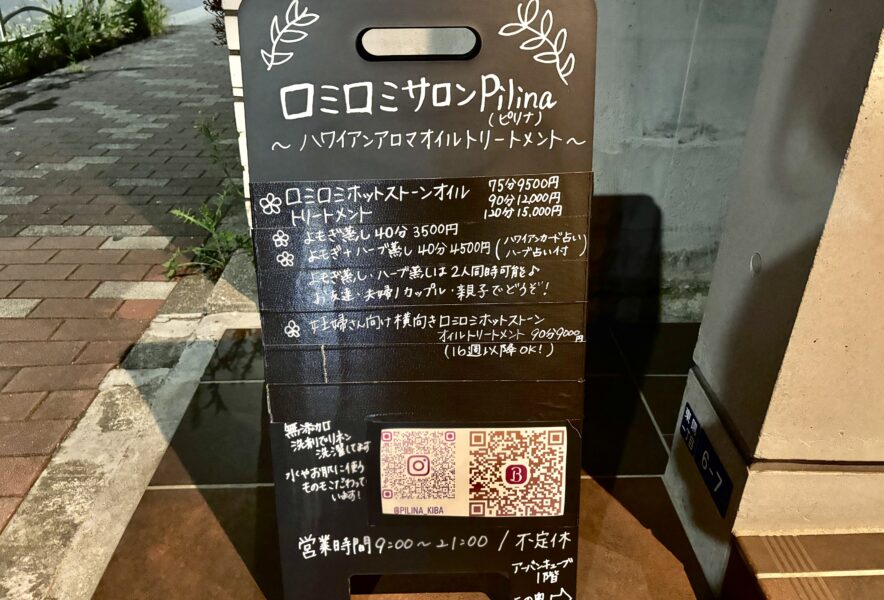 ロミロミサロンPilina
(ピリナ)
～ ハワイアンアロマオイルトリートメント～
ロミロミホットストーンオイル
トリートメント
75分9500円
90分12,000円
120分15,000円
よもぎ蒸し40分3500円
よもぎ+ハーブ蒸し 40分4500円 (ハワイアンカード占い
ハーブ占い付)
よもぎ蒸し・ハーブ蒸しは2人同時可能♪
お友達・夫婦/カップル・親子でどうぞ!
妊婦さん向け横向きロミロミホットストーン
オイルトリートメント 90分9000円
(16週以降OK!)
無添加
洗剤でリネン
洗濯してます
水やお肌に使う
ものもこだわって
います!
@PILINA_KIBA
B
営業時間9:00～21:00 / 不定休
アーバンキューブ
1階
この奥
6-7